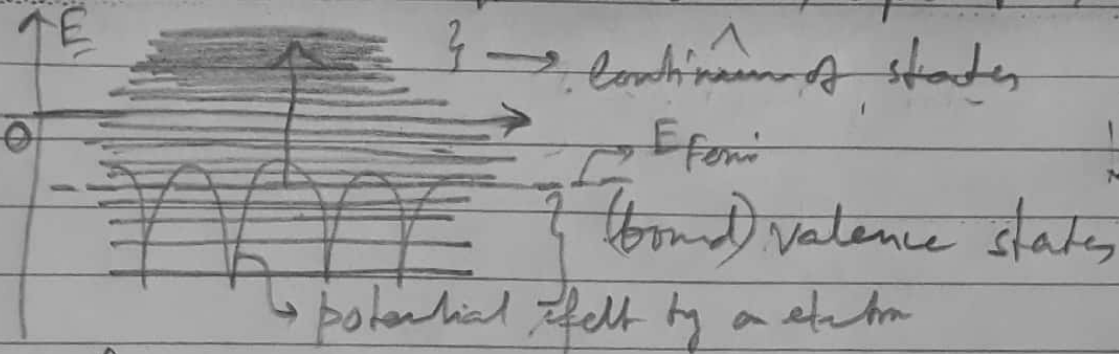 E
} → continuum of states
0
E Fermi
(bound) valence states
potential felt by a electron